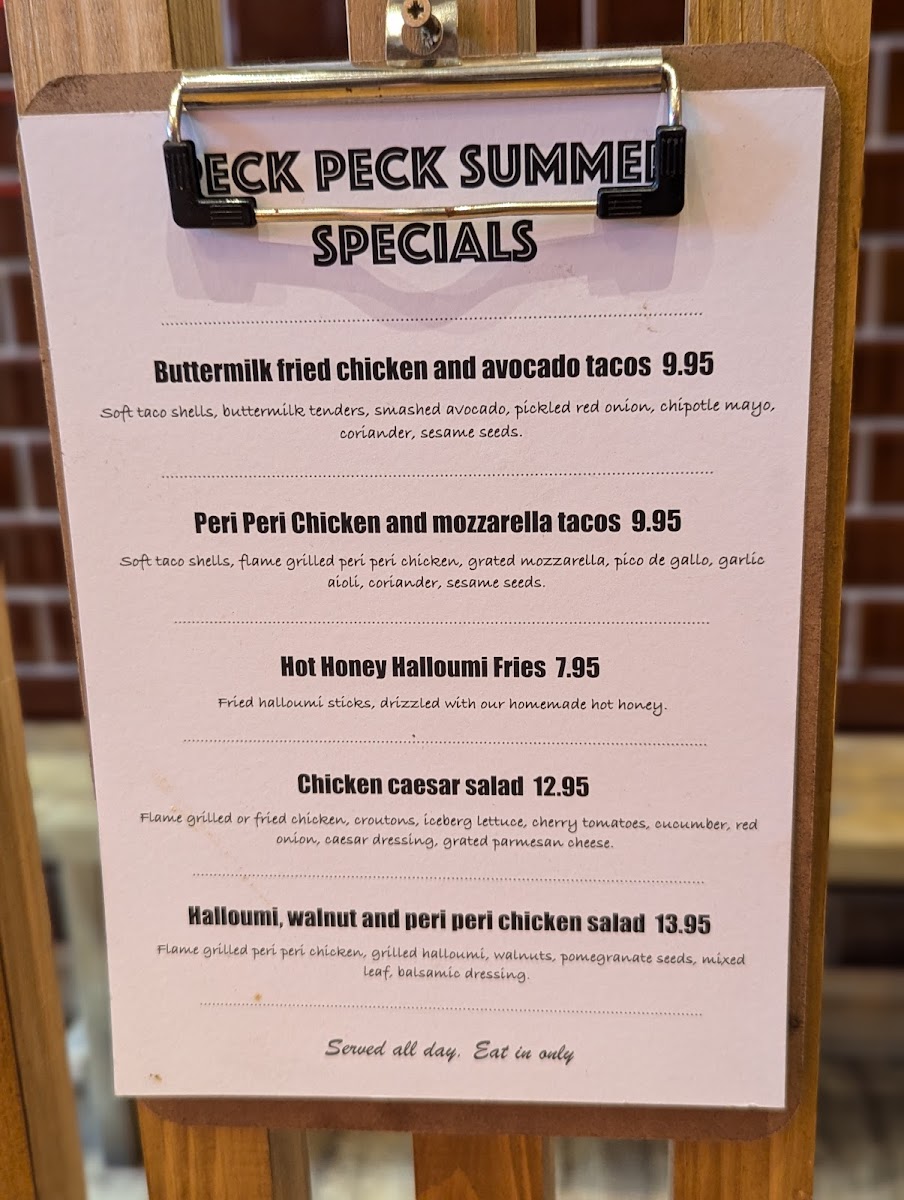 PECK PECK SUMMER
SPECIALS
Buttermilk fried chicken and avocado tacos 9.95
Soft taco shells, buttermilk tenders, smashed avocado, pickled red onion, chipotle mayo,
coriander, sesame seeds.
Peri Peri Chicken and mozzarella tacos 9.95
Soft taco shells, flame grilled peri peri chicken, grated mozzarella, pico de gallo, garlic
aioli, coriander, sesame seeds.
Hot Honey Halloumi Fries 7.95
Fried halloumi sticks, drizzled with our homemade hot honey.
Chicken caesar salad 12.95
Flame grilled or fried chicken, croutons, iceberg lettuce, cherry tomatoes, cucumber, red
onion, caesar dressing, grated parmesan cheese.
Halloumi, walnut and peri peri chicken salad 13.95
Flame grilled peri peri chicken, grilled halloumi, walnuts, pomegranate seeds, mixed
leaf, balsamic dressing.
Served all day. Eat in only